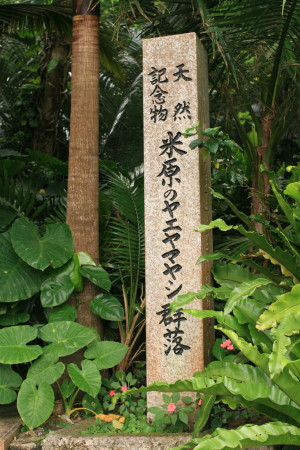 天然
記念物
米原のヤエヤマヤシ群落